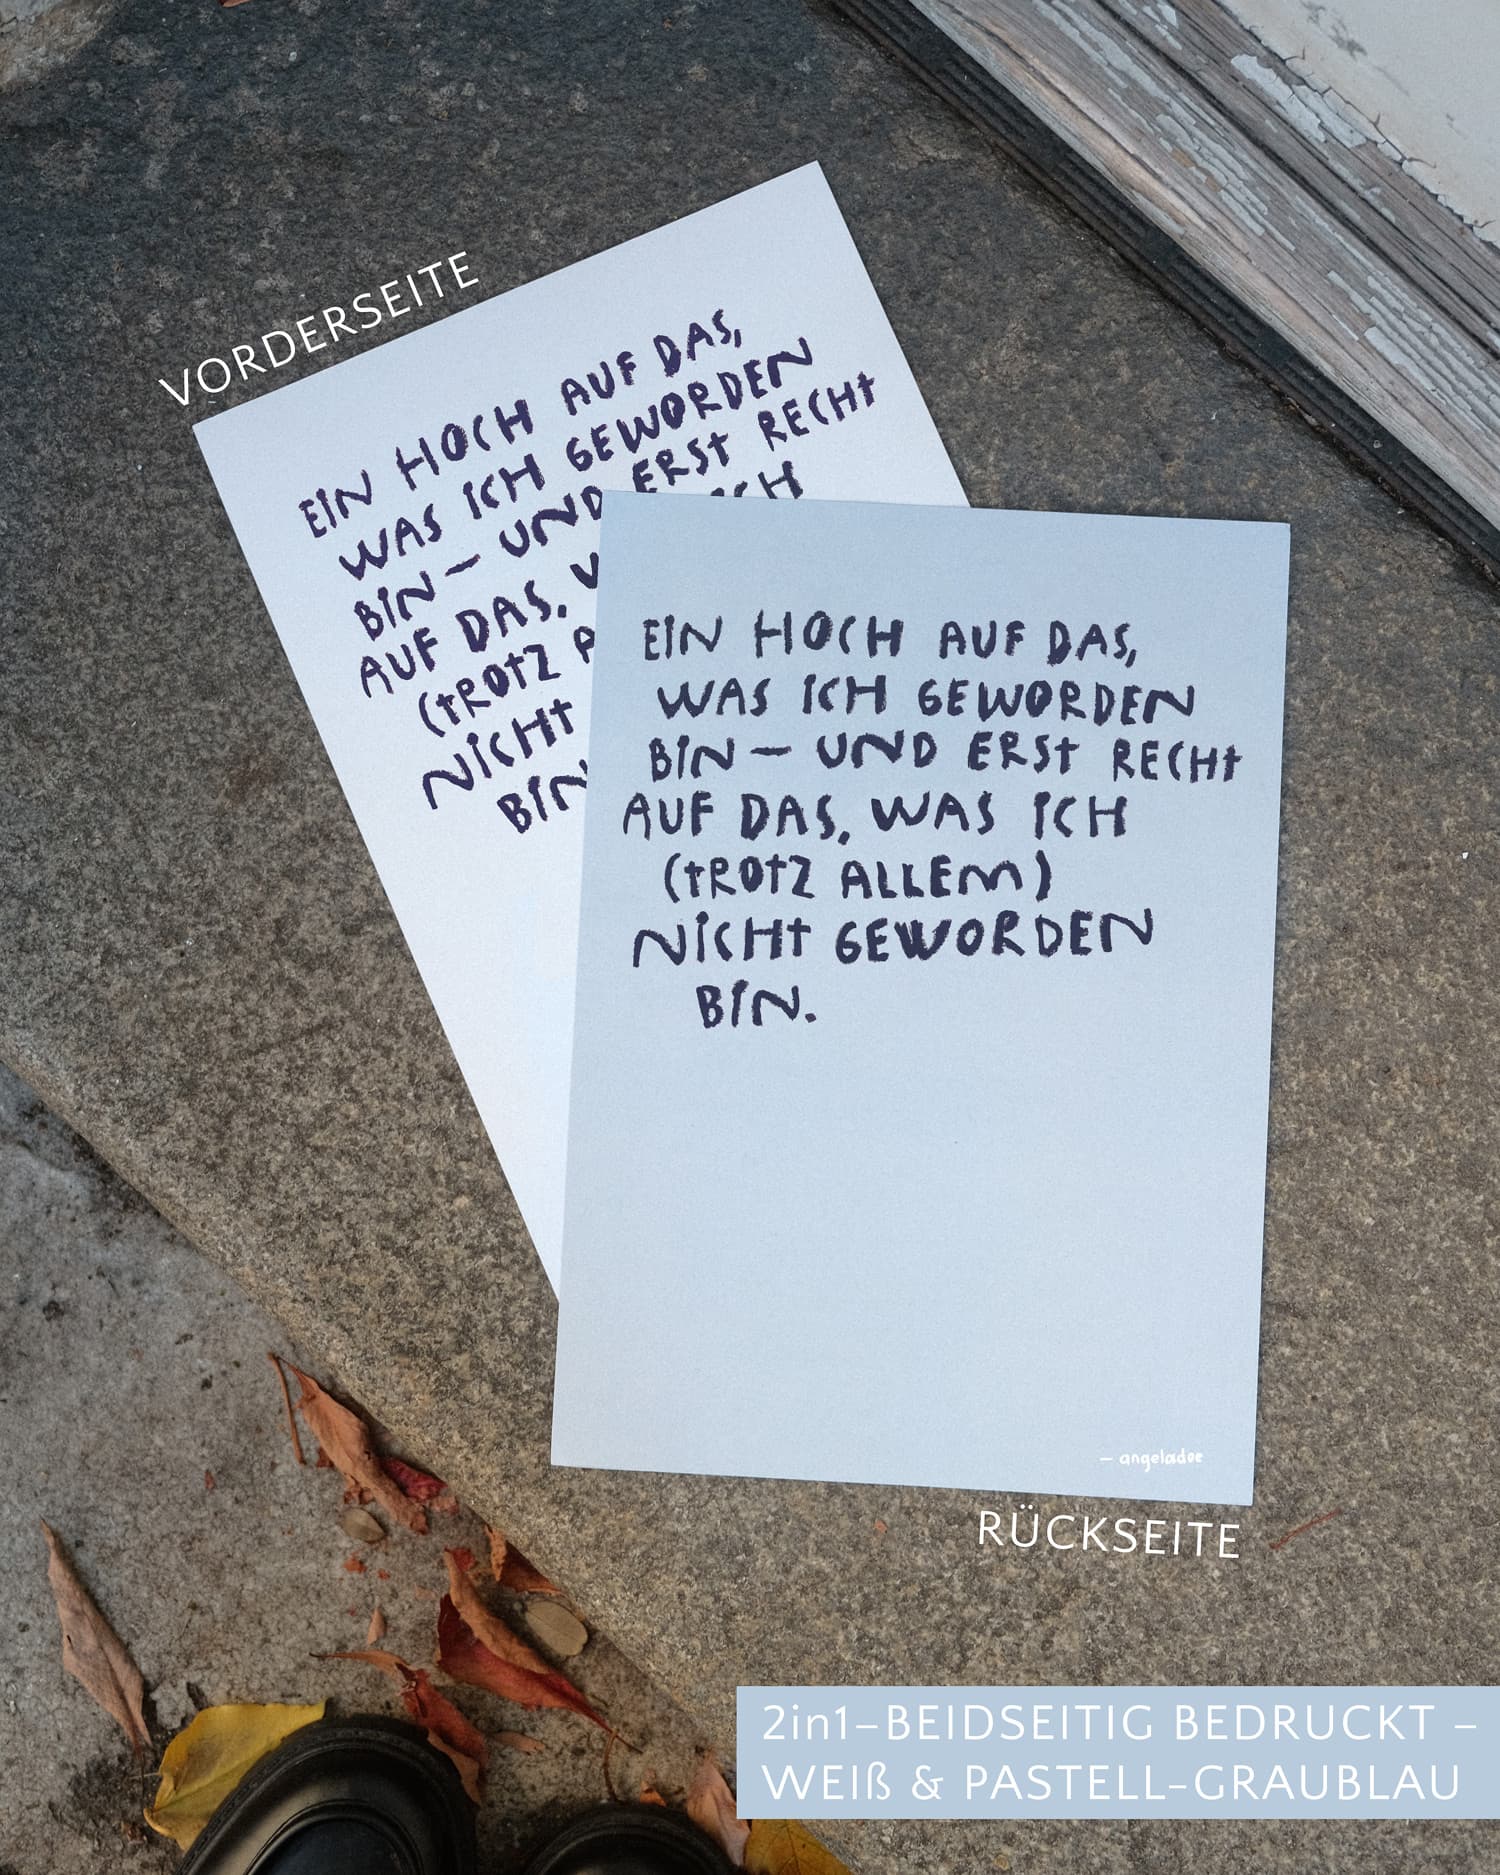 VORDERSEITE
EIN HOCH AUF DAS,
WAS ICH GEWORDEN
BIN — UND ERST RECHT
AUF DAS, ICH
(TROTZ
NICHT
BIN
EIN HOCH AUF DAS,
WAS ICH GEWORDEN
BIN — UND ERST RECHT
AUF DAS, WAS ICH
(TROTZ ALLEM)
NICHT GEWORDEN
BIN.
— angeladoe
RÜCKSEITE
2in1–BEIDSEITIG BEDRUCKT –
WEIß & PASTELL-GRAUBLAU